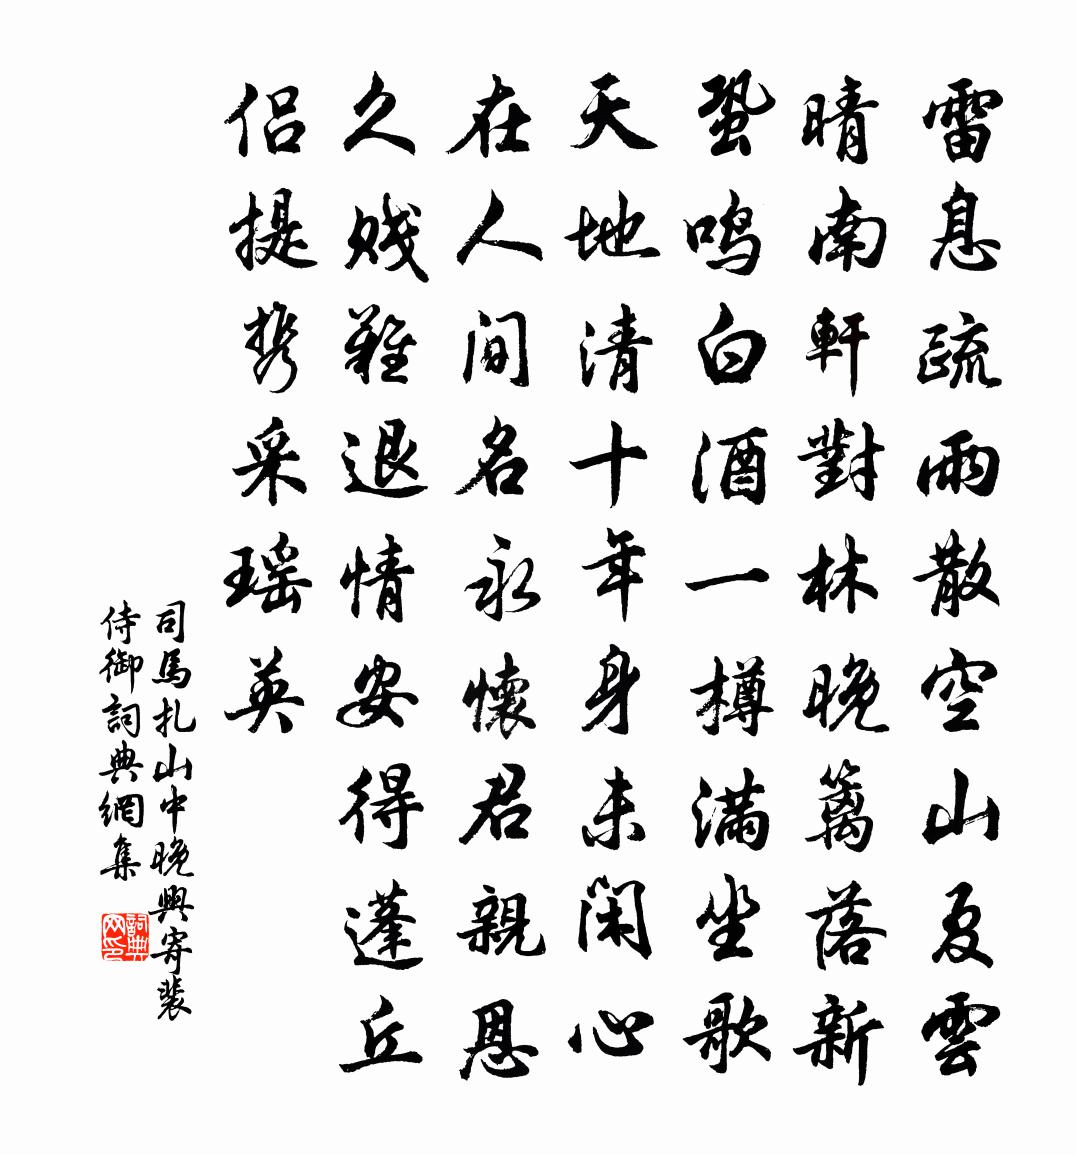 雷息疏雨散空山夏雲
晴南軒對林晚籬落新
蛩鳴白酒一樽滿坐歌
天地清十年身未閑心
在人間名永懷君親恩
久賤難退情安得蓬丘
侶提携采瑶英
司馬扎山中晚興寄裴
侍御詞典網集
詞典
网印